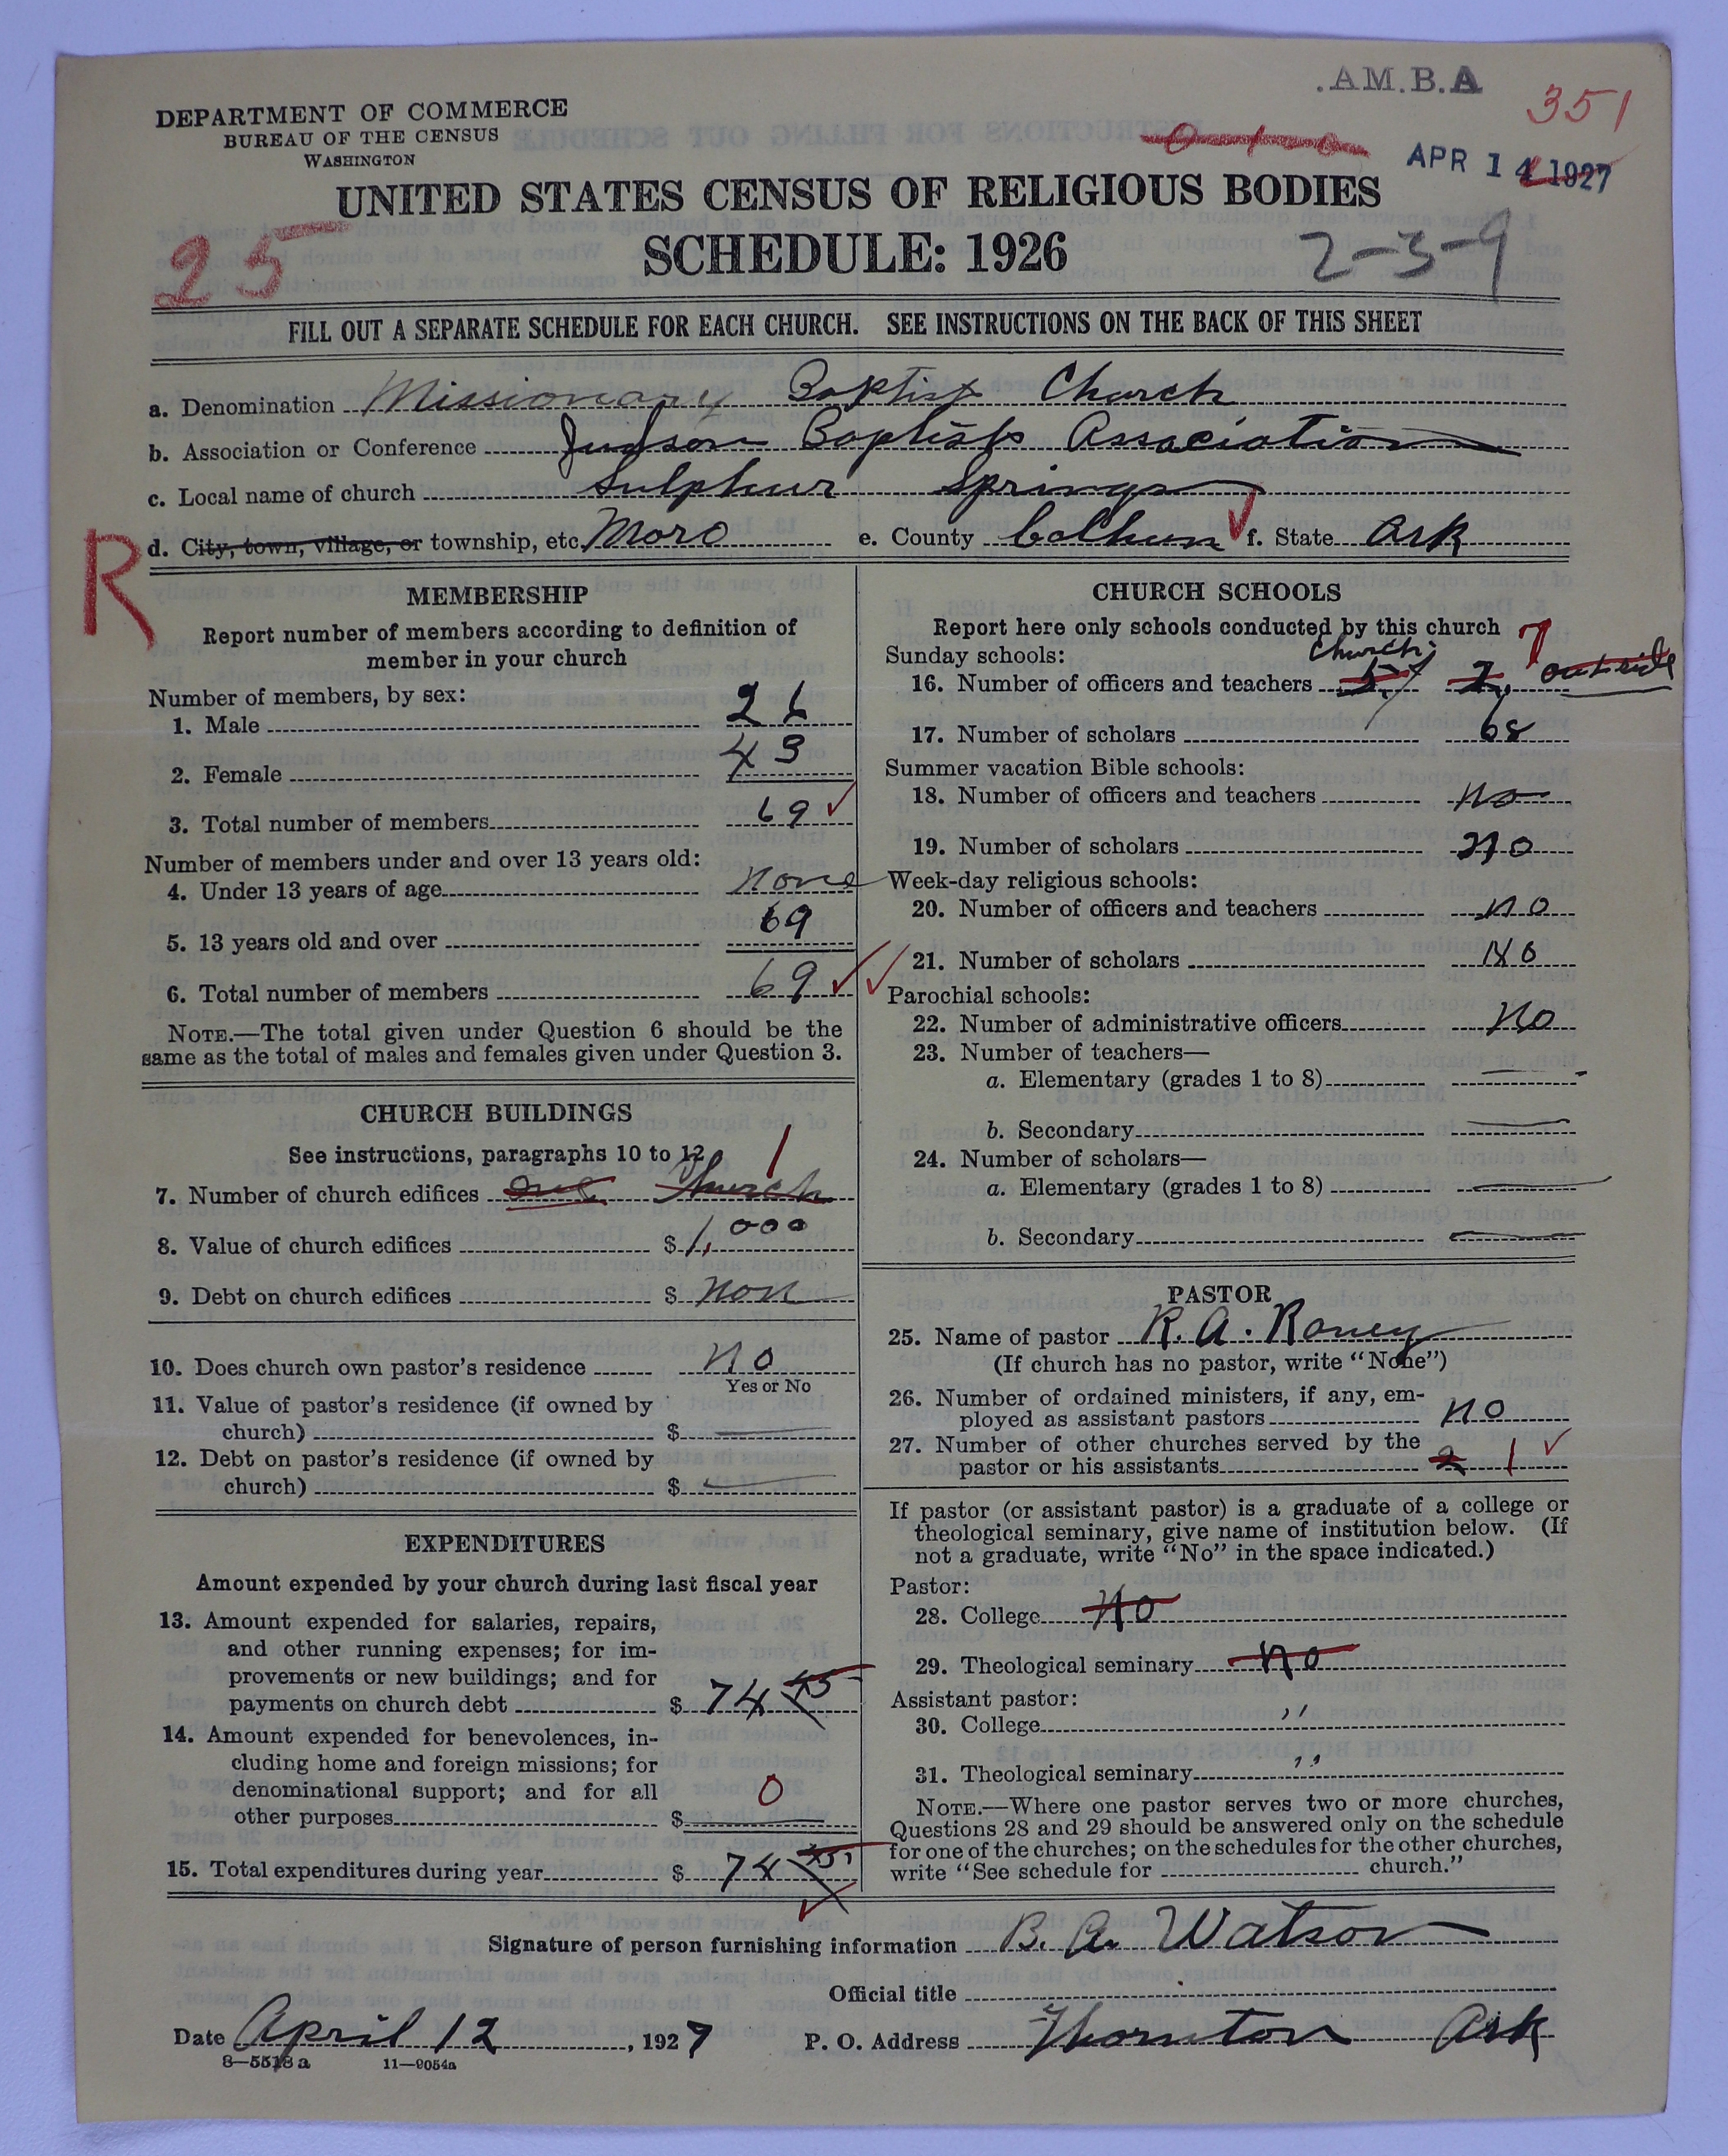 .A.M.B.A
351
DEPARTMENT OF COMMERCE
BUREAU OF THE CENSUS
WASHINGTON
0-1-0
APR 14 1927
UNITED STATES CENSUS OF RELIGIOUS BODIES
SCHEDULE: 1926
25
2-3-9
FILL OUT A SEPARATE SCHEDULE FOR EACH CHURCH. SEE INSTRUCTIONS ON THE BACK OF THIS SHEET
a. Denomination Missionary Baptist Church
b. Association or Conference Judson Baptists Association
c. Local name of church Sulphur Springs
R
d. City, town, village, or township, etc. Moro e. County Calhoun f. State Ark
MEMBERSHIP
Report number of members according to definition of
member in your church
Number of members, by sex:
1. Male 26
2. Female 43
3. Total number of members 69
Number of members under and over 13 years old:
4. Under 13 years of age none
5. 13 years old and over 69
6. Total number of members 69
NOTE.—The total given under Question 6 should be the
same as the total of males and females given under Question 3.
CHURCH BUILDINGS
See instructions, paragraphs 10 to 12
1
7. Number of church edifices one Church
8. Value of church edifices $ 1,000
9. Debt on church edifices $ non
10. Does church own pastor's residence no
Yes or No
11. Value of pastor's residence (if owned by
church) $
12. Debt on pastor's residence (if owned by
church) $
EXPENDITURES
Amount expended by your church during last fiscal year
13. Amount expended for salaries, repairs,
and other running expenses; for im-
provements or new buildings; and for
payments on church debt $ 74 45
14. Amount expended for benevolences, in-
cluding home and foreign missions; for
denominational support; and for all
other purposes $ 0
15. Total expenditures during year $ 74 45
CHURCH SCHOOLS
Report here only schools conducted by this church
Sunday schools: Church. 7
16. Number of officers and teachers 5, 2, outside
17. Number of scholars 68
Summer vacation Bible schools:
18. Number of officers and teachers no
19. Number of scholars no
Week-day religious schools:
20. Number of officers and teachers no
21. Number of scholars no
Parochial schools:
22. Number of administrative officers no
23. Number of teachers—
a. Elementary (grades 1 to 8)
b. Secondary
24. Number of scholars—
a. Elementary (grades 1 to 8)
b. Secondary
PASTOR
25. Name of pastor R. A. Roney
(If church has no pastor, write "None")
26. Number of ordained ministers, if any, em-
ployed as assistant pastors no
27. Number of other churches served by the
pastor or his assistants 2 1
If pastor (or assistant pastor) is a graduate of a college or
theological seminary, give name of institution below. (If
not a graduate, write "No" in the space indicated.)
Pastor:
28. College no
29. Theological seminary no
Assistant pastor:
30. College "
31. Theological seminary "
NOTE.—Where one pastor serves two or more churches,
Questions 28 and 29 should be answered only on the schedule
for one of the churches; on the schedules for the other churches,
write "See schedule for church."
Signature of person furnishing information B. A. Watson
Official title
Date April 12, 1927 P. O. Address Thornton Ark
8—5518a 11—9054a